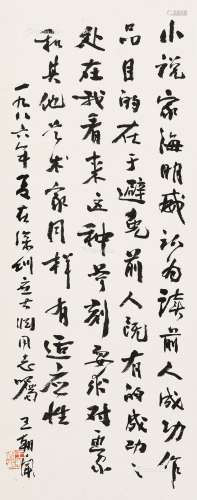 小说家海明威认为读前人成功作
品目的在于避免前人既有的成功之
处在我看来这种苛刻要求对画家
和其他艺术家同样有适应性
一九八六年夏在深圳应同志嘱 王朝闻